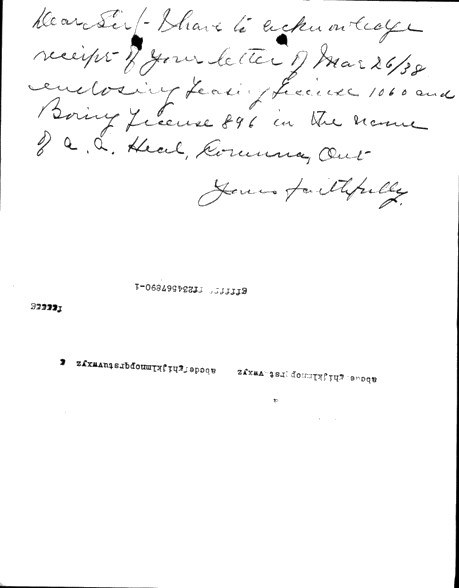 Dear Sir/- I have to acknowledge
receipt of your letter of Mar 26/38
enclosing Leasing License 1060 and
Boring License 896 in the name
of A. A. Heal, Corunna, Ont
Yours faithfully.
1234567890-1
abcdefghijklmnopqrstuvwxyz